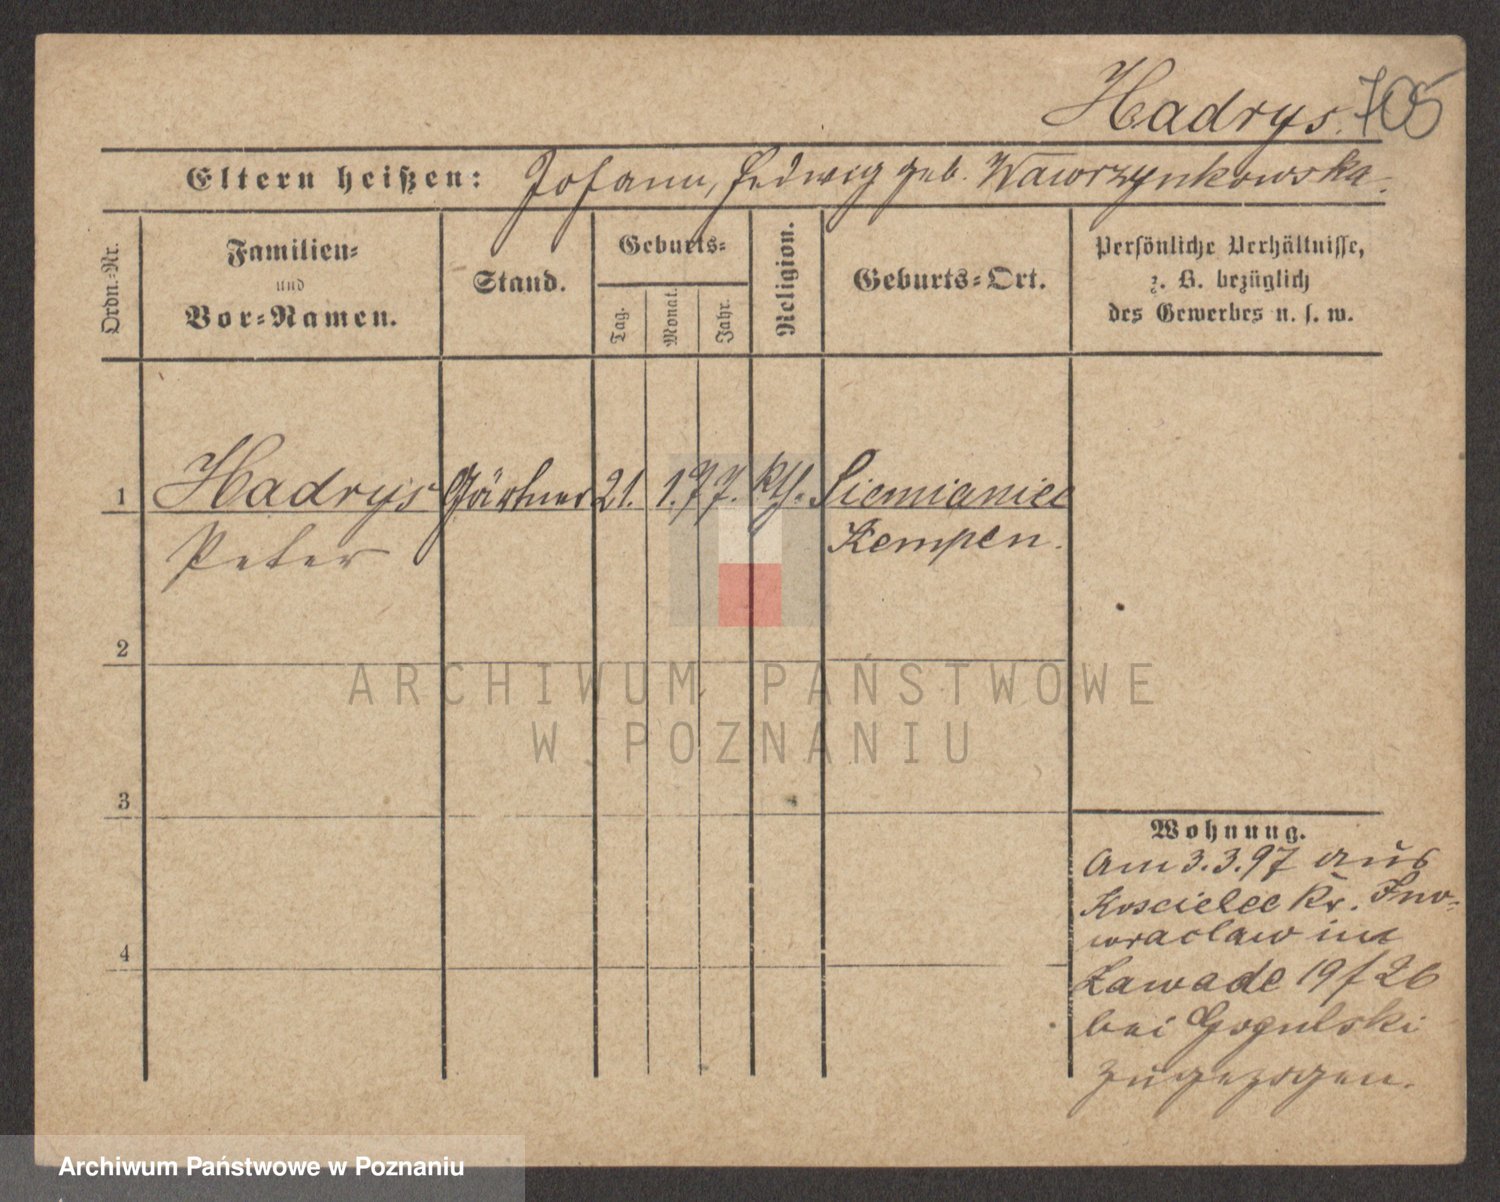 Hadrys. 705
Eltern heißen: Johann, Hedwig geb. Wawrzynkowska.
Ordn.-Nr.
Familien-
und
Vor-Namen.
Stand.
Geburts-
Tag.
Monat.
Jahr.
Religion.
Geburts-Ort.
Persönliche Verhältnisse,
z. B. bezüglich
des Gewerbes u. s. w.
1 Hadrys Gärtner 21. 1. 77. kth. Siemianiec
Peter Kempen.
2
ARCHIWUM PAŃSTWOWE
W POZNANIU
3
Wohnung.
Am 3. 3. 97 aus
Koscielec Kr. Ino-
wraclaw in
Zawade 19/26
bei Gogulski
zugezogen.
4
Archiwum Państwowe w Poznaniu